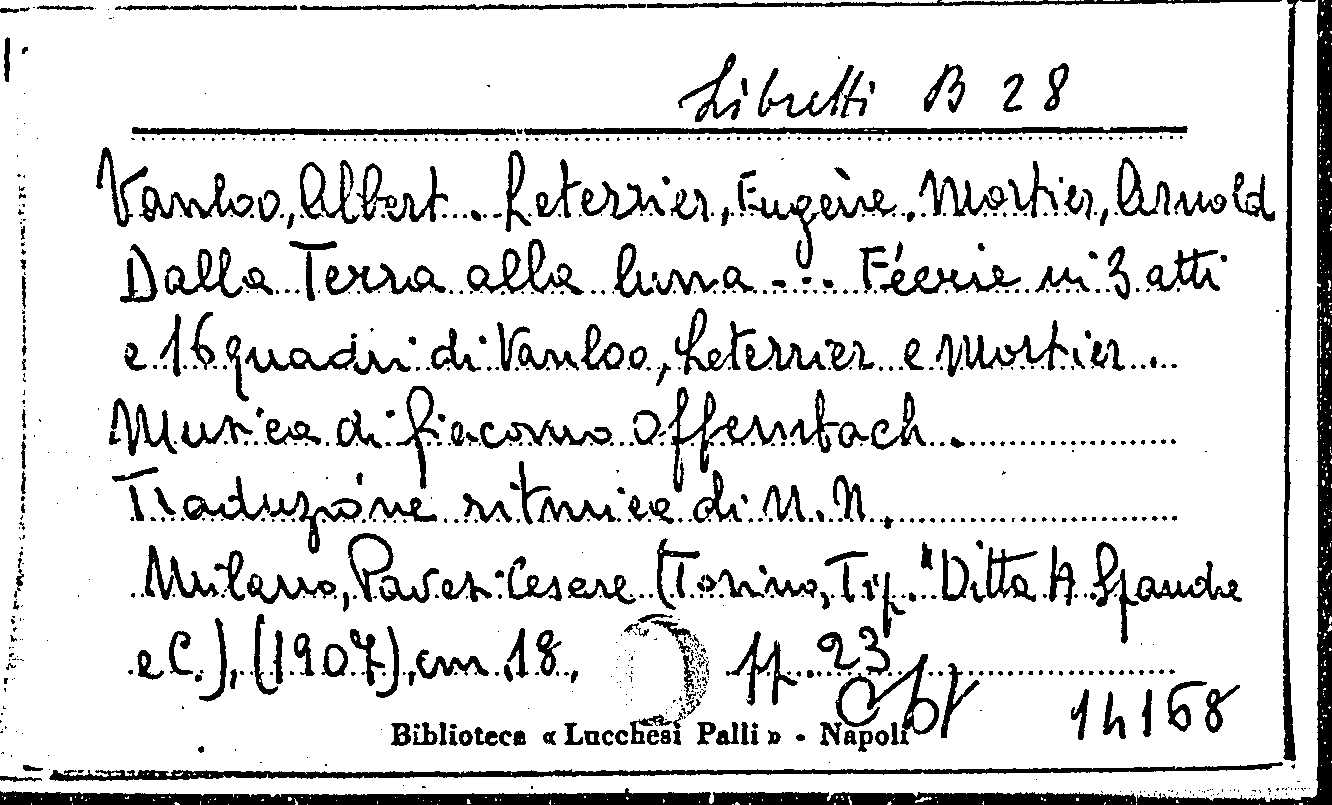 Libretti B 28
Vanloo, Albert. Leterrier, Eugène. Mortier, Arnold
Dalla Terra alla luna... Féerie in 3 atti
e 16 quadri di Vanloo, Leterrier e Mortier.
Musica di Giacomo Offembach.
Traduzione ritmica di N. N.
Milano, Pavesi Cesare (Torino, Tip. "Ditta A. Spandre
e C.), (1907), cm. 18, pp. 23
14168
Biblioteca « Lucchesi Palli » - Napoli